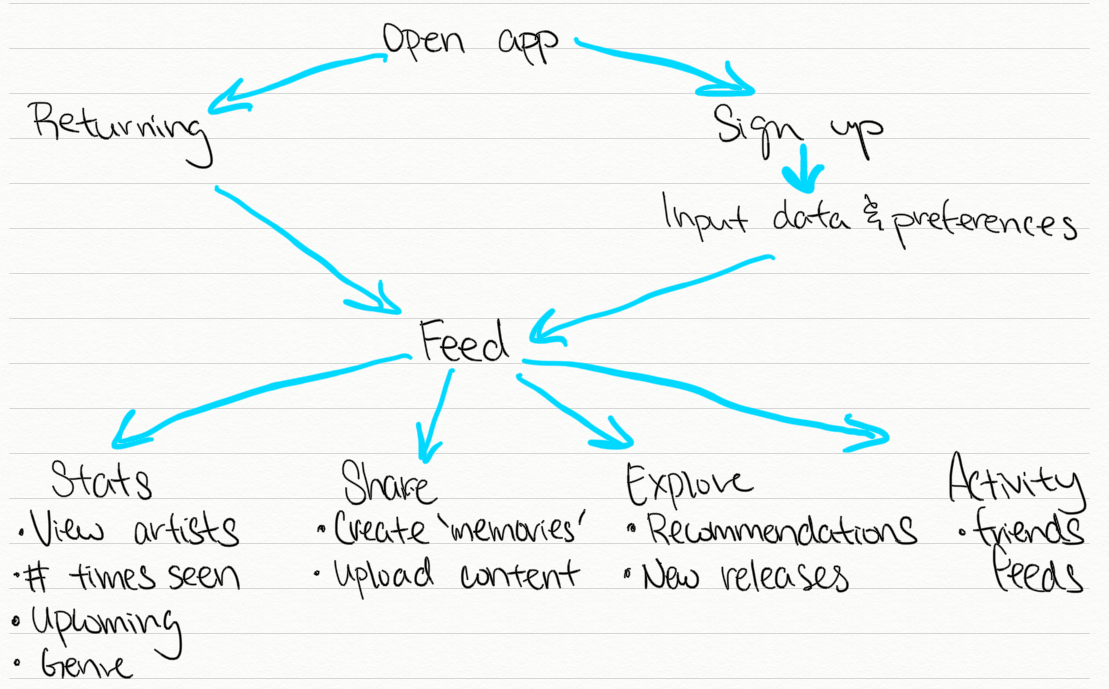 Open app
Returning
Sign up
Input data & preferences
Feed
Stats
• View artists
• # times seen
• Upcoming
• Genre
Share
• Create 'memories'
• Upload content
Explore
• Recommendations
• New releases
Activity
• friends
feeds